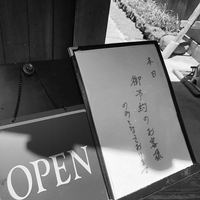 本日
御予約のお客様
のみとなっております
OPEN